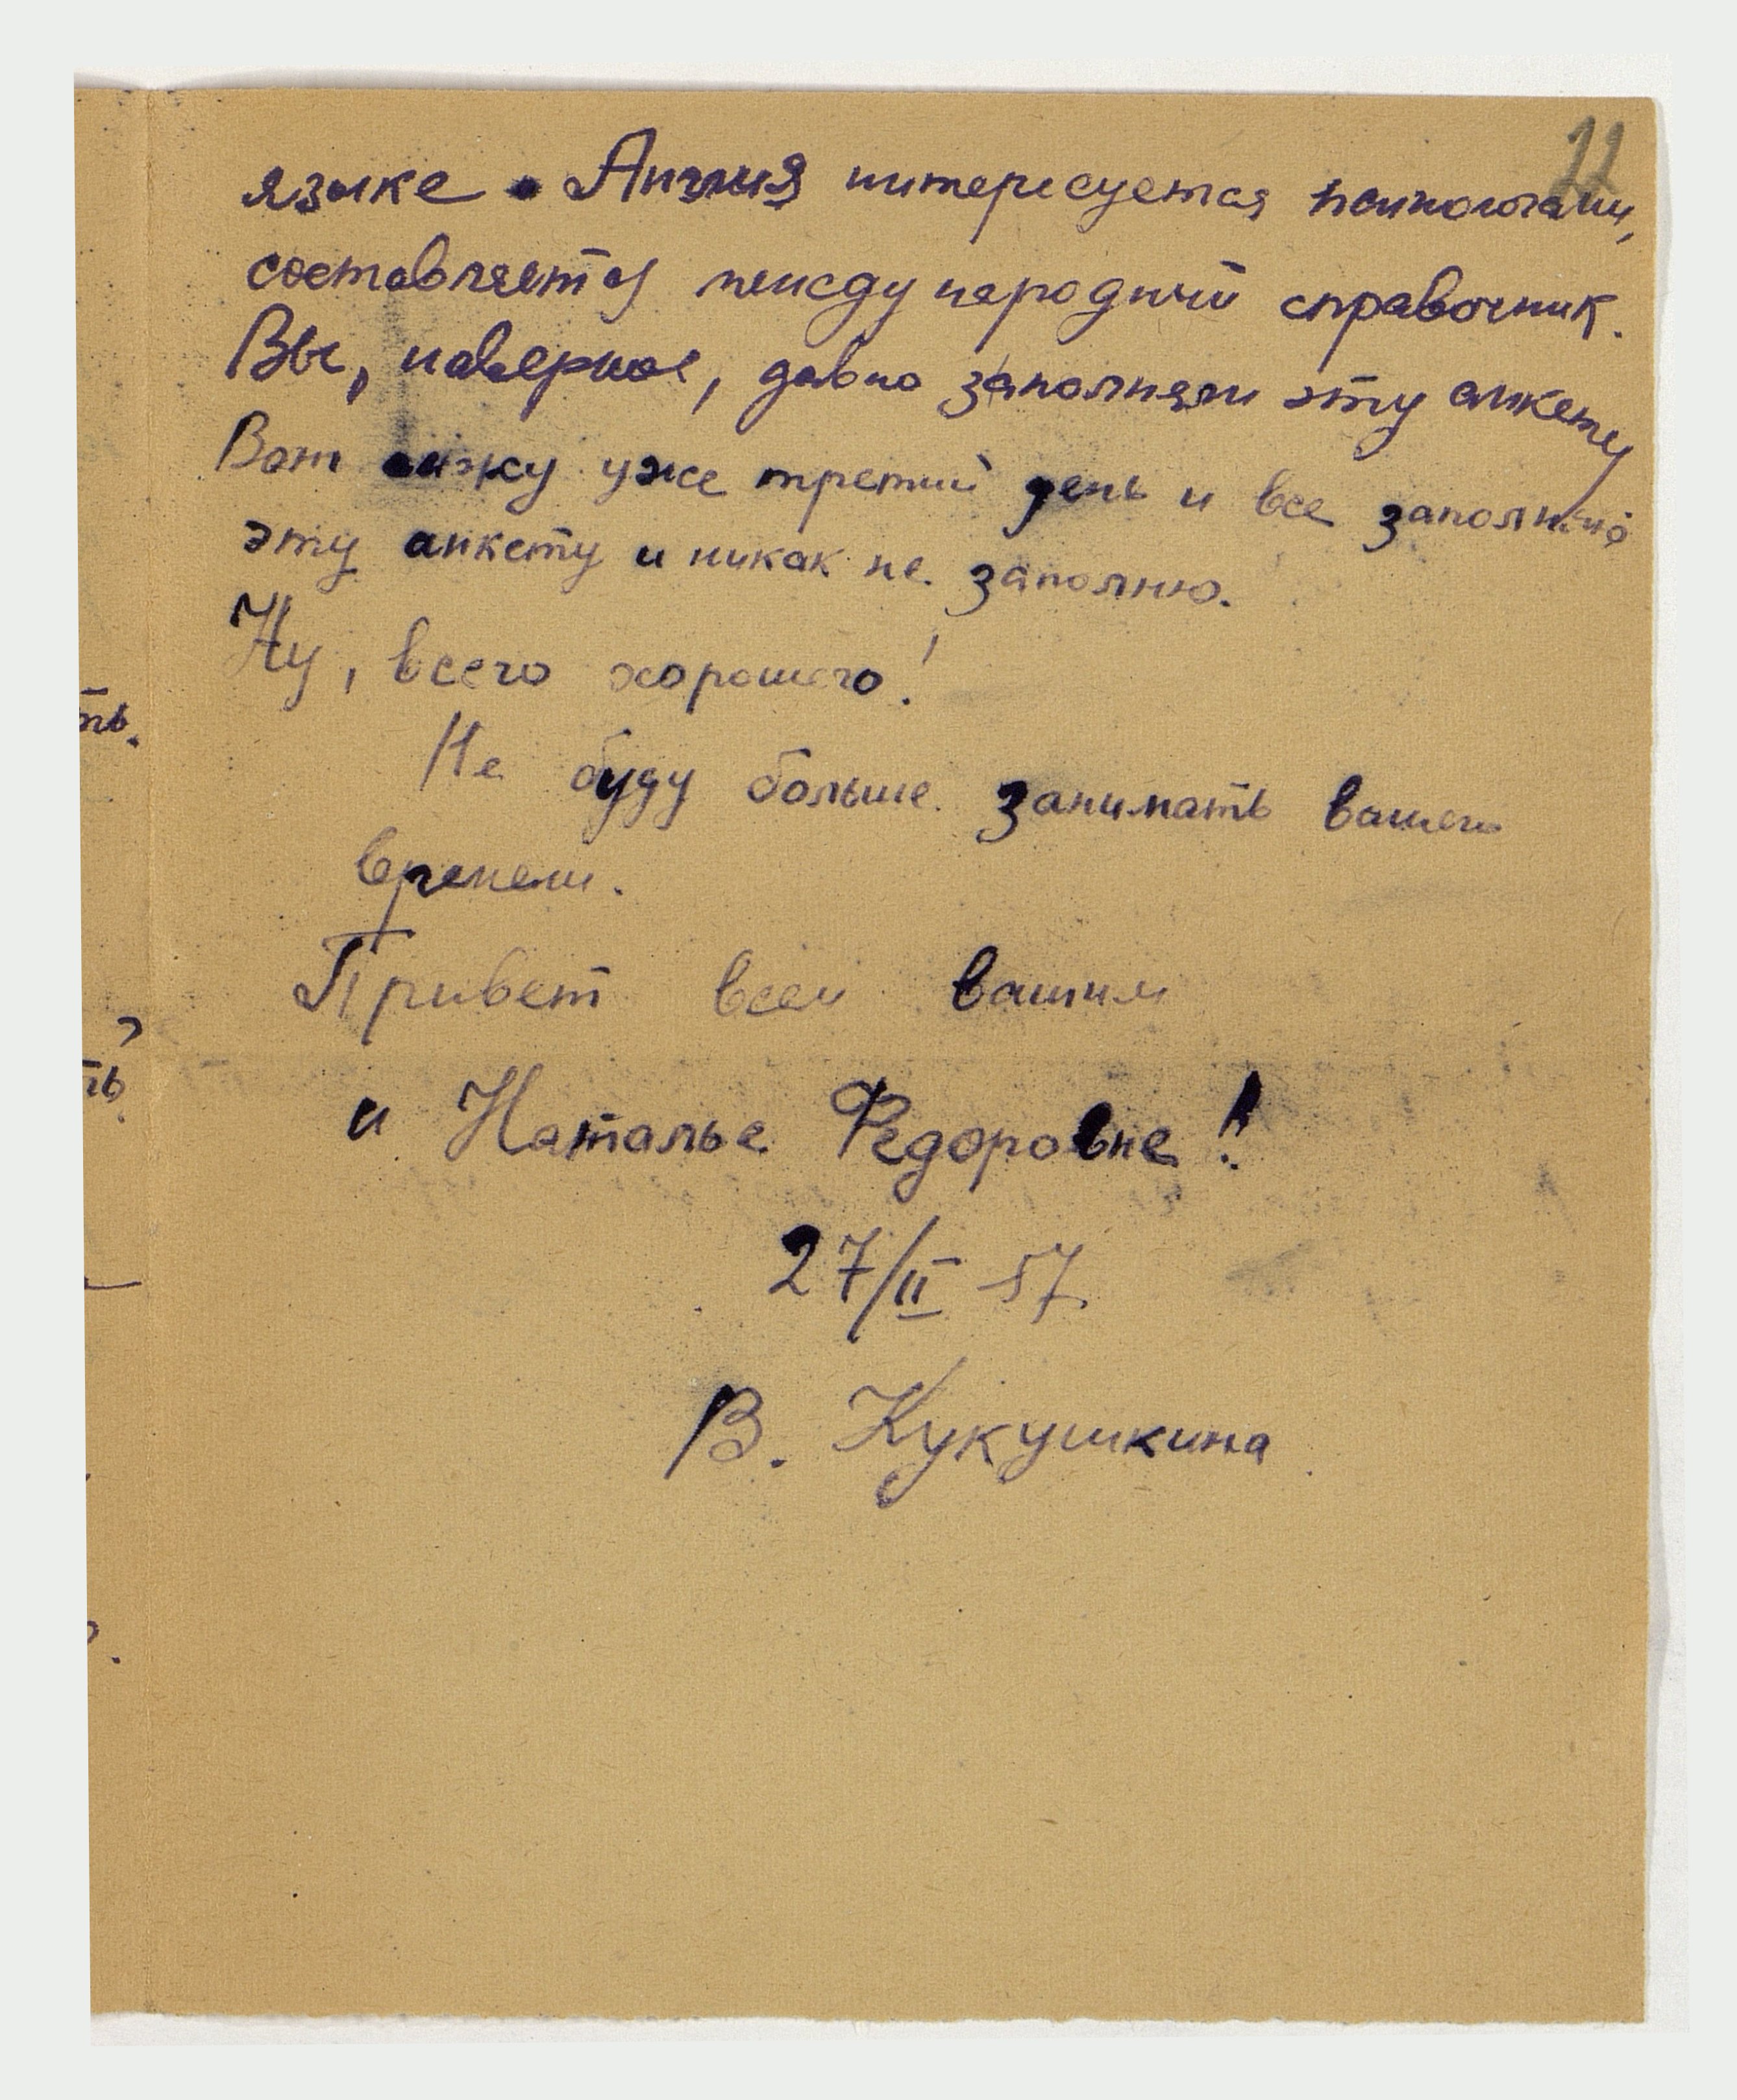 22
языке. Англия интересуется психологами,
составляется международный справочник.
Вы, наверное, давно заполняли эту анкету
Вот сижу уже третий день и все заполняю
эту анкету и никак не заполню.
Ну, всего хорошего!
Не буду больше занимать вашего
времени.
Привет всем вашим
и Наталье Федоровне!!
27/II 57
В. Кукушкина
ть.
ть